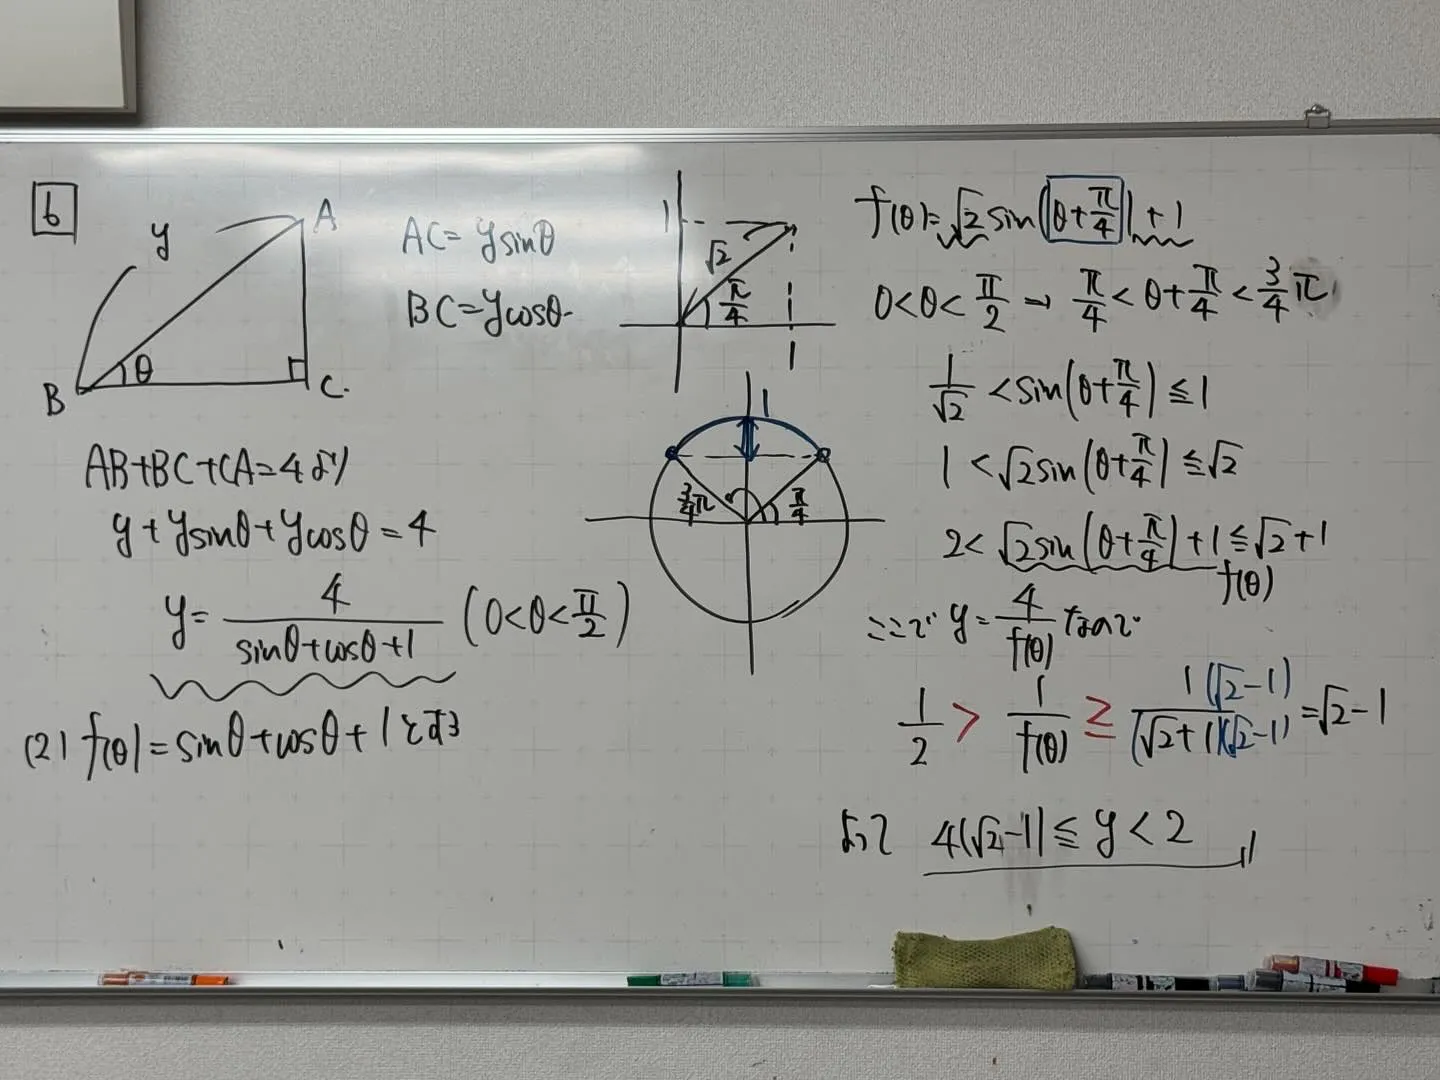 6
y
A
θ
B
C.
AC= ysinθ
BC=ycosθ.
AB+BC+CA=4より
y+ysinθ+ycosθ=4
y= 4/(sinθ+cosθ+1) (0<θ<π/2)
(2) f(θ)=sinθ+cosθ+1とする
1
√2
π/4
1
1
3/4π
π/4
f(θ)=√2sin(θ+π/4)+1
0<θ<π/2 → π/4<θ+π/4<3/4π
1/√2<sin(θ+π/4)≦1
1<√2sin(θ+π/4)≦√2
2<√2sin(θ+π/4)+1≦√2+1
f(θ)
ここで y=4/f(θ) なので
1/2 > 1/f(θ) ≧ 1(√2-1)/(√2+1)(√2-1) =√2-1
よって 4(√2-1)≦y<2